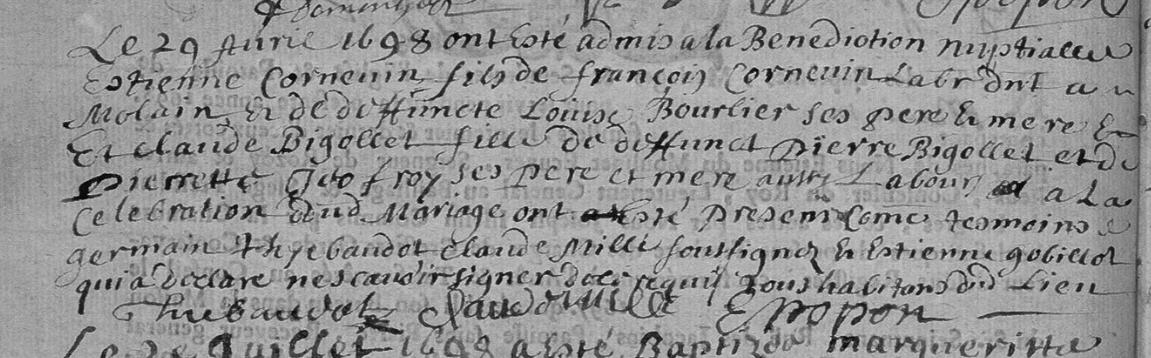 Le 29 Avril 1698 ont esté admis a la Benediction nuptialle
Estienne Cornevin fils de françois Cornevin Labrdnt a
Molain, et de deffuncte Louise Bourlier ses pere & mere
Et claude Bigollet fille de deffunct Pierre Bigollet et de
Pierrette Geofroy ses pere et mere aussy Labour a La
Celebration dud Mariage ont esté presents Comes tesmoins
germain Thyebaudot claude Mille soussignez & Estienne gobillot
qui a declare ne scavoir signer de ce requis Tous habitans dud Lieu
Thiebaudot Claude Mille
Le Juillet 1698 a esté Baptizée margueritte